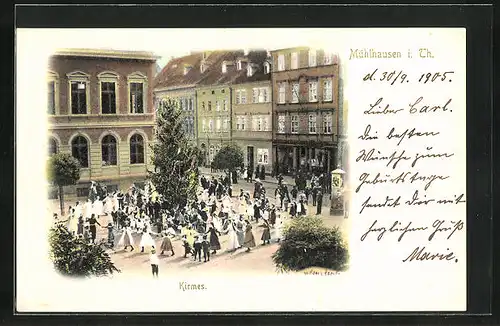 Mühlhausen i. Th.
d. 30/9. 1905.
Lieber Carl.
Die besten
Wünsche zum
Geburtstage
sendet Dir mit
herzlichen Gruß
Marie.
Kirmes.